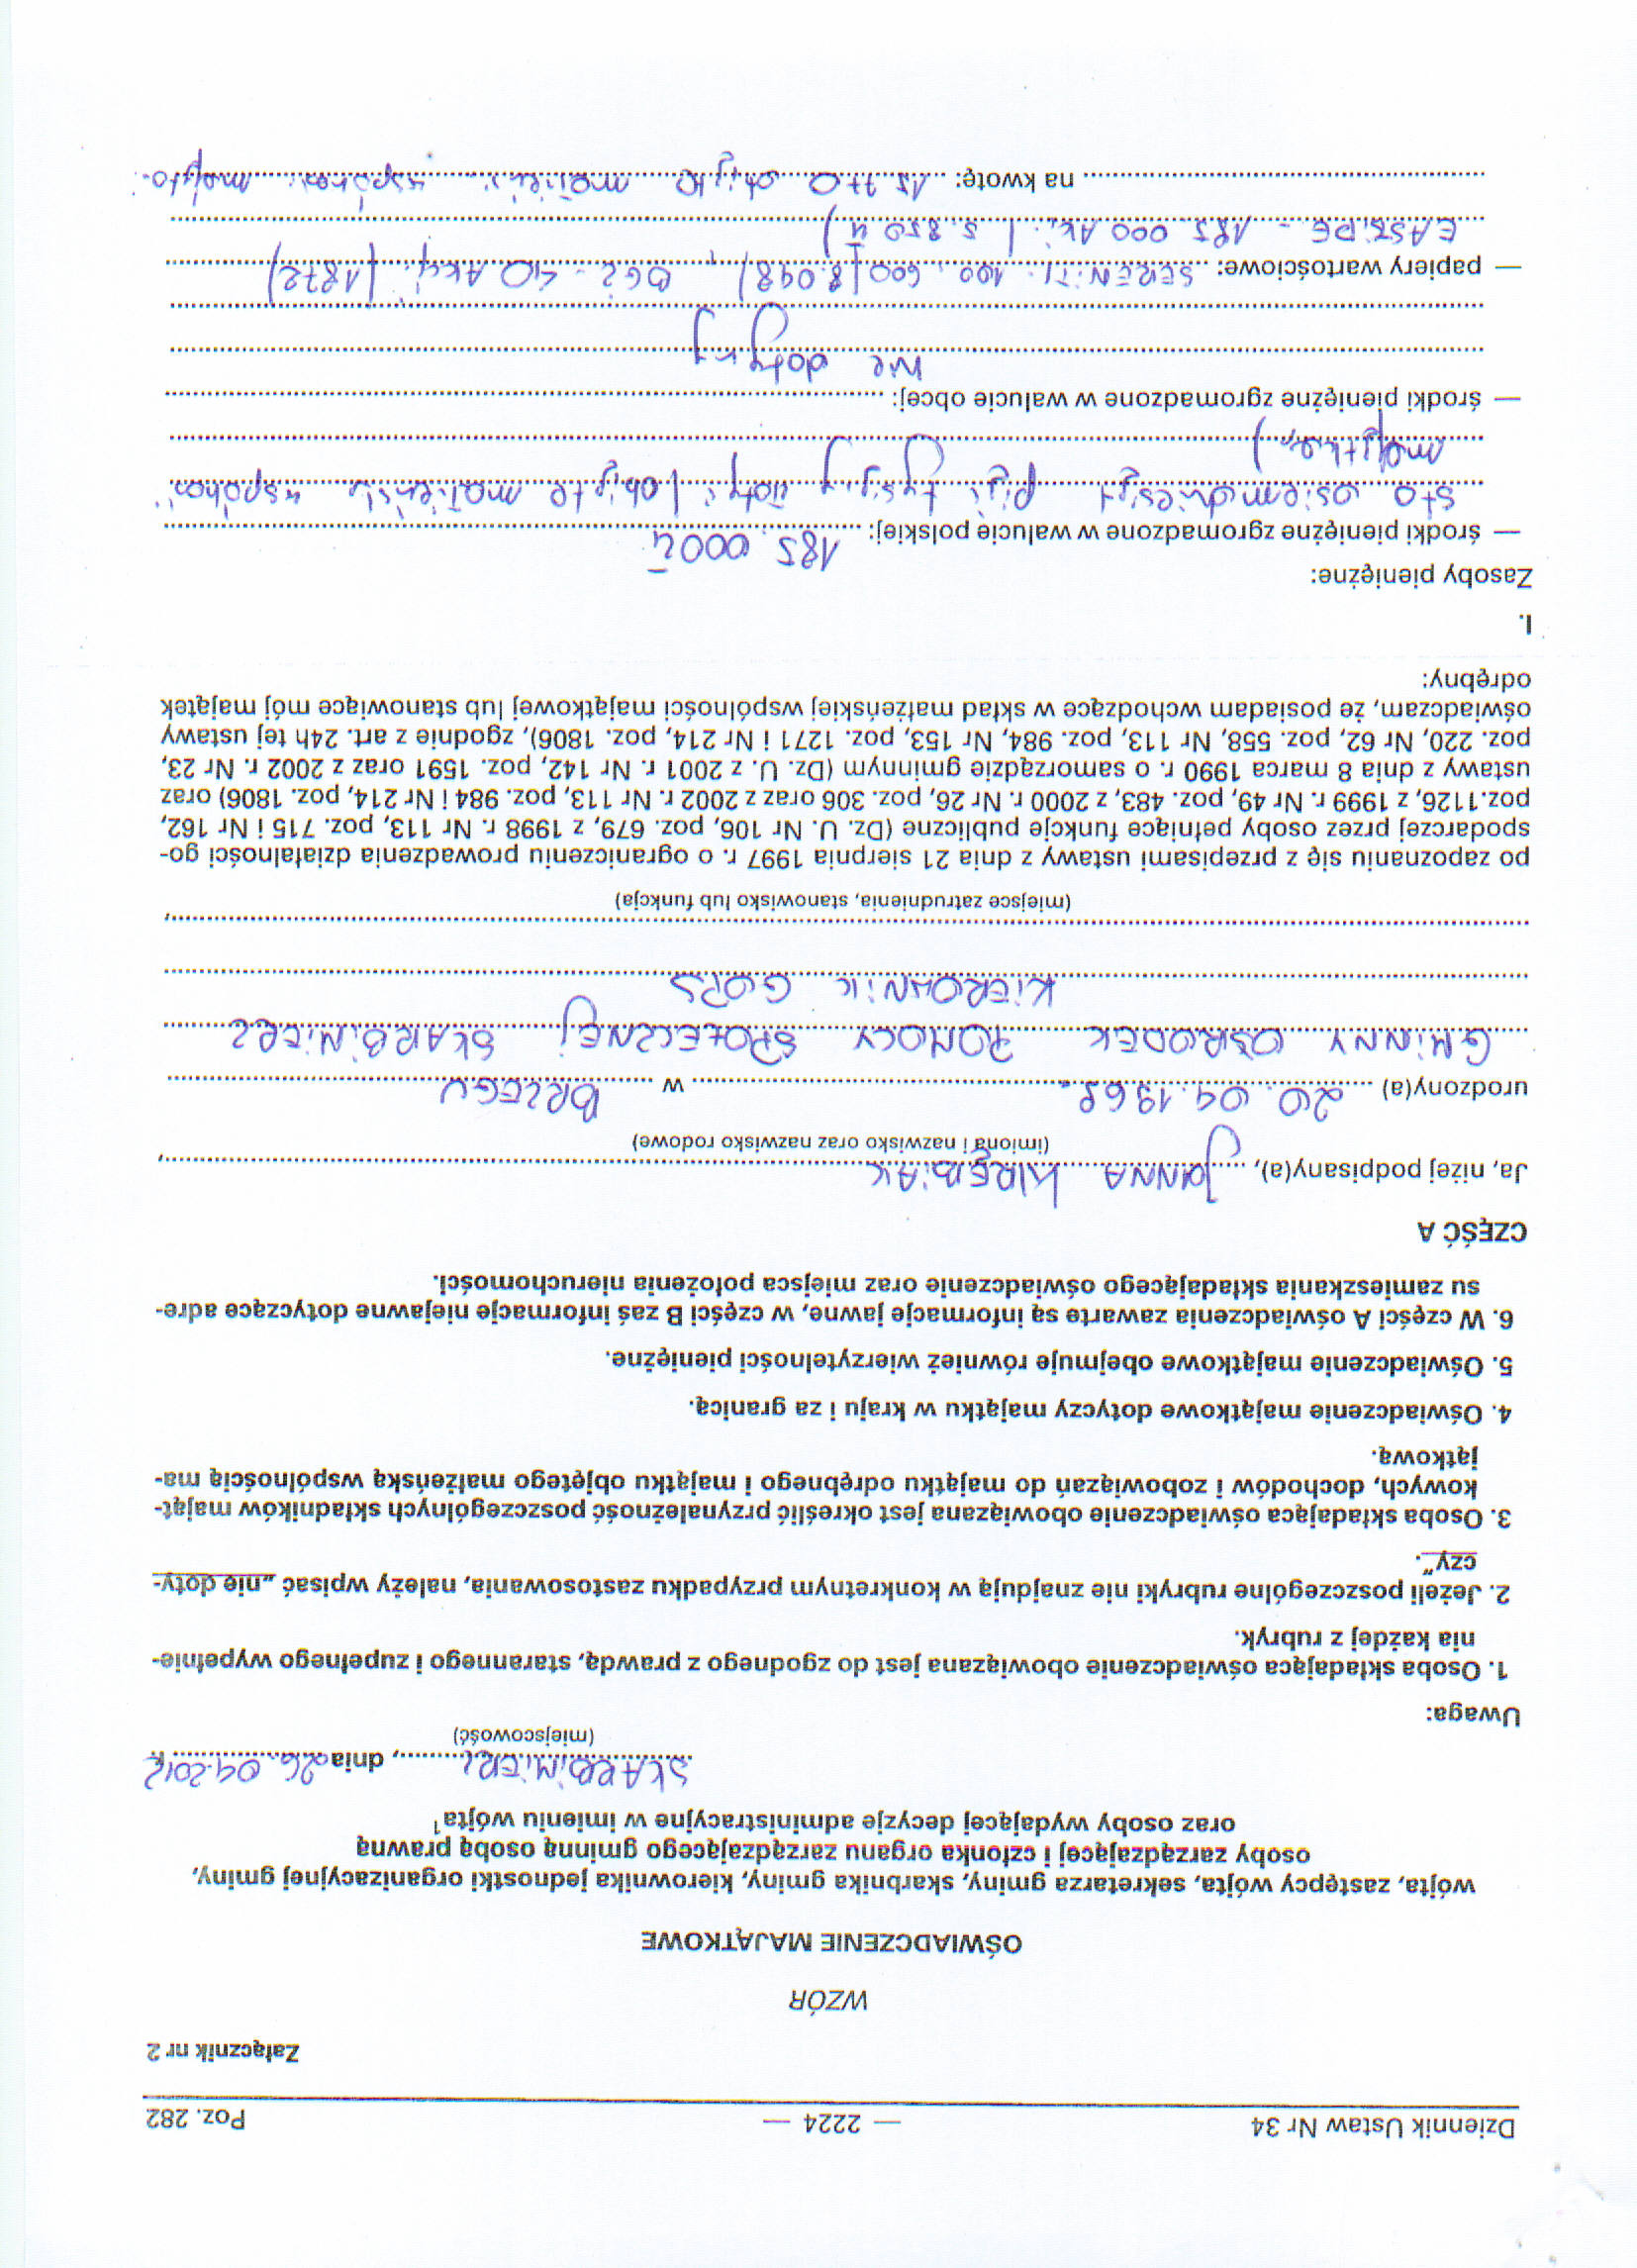 Dziennik Ustaw Nr 34 — 2224 — Poz. 282
Załącznik nr 2
WZÓR
OŚWIADCZENIE MAJĄTKOWE
wójta, zastępcy wójta, sekretarza gminy, skarbnika gminy, kierownika jednostki organizacyjnej gminy,
osoby zarządzającej i członka organu zarządzającego gminną osobą prawną
oraz osoby wydającej decyzje administracyjne w imieniu wójta¹
SKARBIMIERZ, dnia 26.04.2012 r.
(miejscowość)
Uwaga:
1. Osoba składająca oświadczenie obowiązana jest do zgodnego z prawdą, starannego i zupełnego wypełnie-
nia każdej z rubryk.
2. Jeżeli poszczególne rubryki nie znajdują w konkretnym przypadku zastosowania, należy wpisać „nie doty-
czy”.
3. Osoba składająca oświadczenie obowiązana jest określić przynależność poszczególnych składników mająt-
kowych, dochodów i zobowiązań do majątku odrębnego i majątku objętego małżeńską wspólnością ma-
jątkową.
4. Oświadczenie majątkowe dotyczy majątku w kraju i za granicą.
5. Oświadczenie majątkowe obejmuje również wierzytelności pieniężne.
6. W części A oświadczenia zawarte są informacje jawne, w części B zaś informacje niejawne dotyczące adre-
su zamieszkania składającego oświadczenie oraz miejsca położenia nieruchomości.
CZĘŚĆ A
Ja, niżej podpisany(a), JOANNA KIREBIAK,
(imiona i nazwisko oraz nazwisko rodowe)
urodzony(a) 20.04.1968 w BRZEGU
GMINNY OŚRODEK POMOCY SPOŁECZNEJ SKARBIMIERZ
KIEROWNIK GOPS
(miejsce zatrudnienia, stanowisko lub funkcja)
po zapoznaniu się z przepisami ustawy z dnia 21 sierpnia 1997 r. o ograniczeniu prowadzenia działalności go-
spodarczej przez osoby pełniące funkcje publiczne (Dz. U. Nr 106, poz. 679, z 1998 r. Nr 113, poz. 715 i Nr 162,
poz.1126, z 1999 r. Nr 49, poz. 483, z 2000 r. Nr 26, poz. 306 oraz z 2002 r. Nr 113, poz. 984 i Nr 214, poz. 1806) oraz
ustawy z dnia 8 marca 1990 r. o samorządzie gminnym (Dz. U. z 2001 r. Nr 142, poz. 1591 oraz z 2002 r. Nr 23,
poz. 220, Nr 62, poz. 558, Nr 113, poz. 984, Nr 153, poz. 1271 i Nr 214, poz. 1806), zgodnie z art. 24h tej ustawy
oświadczam, że posiadam wchodzące w skład małżeńskiej wspólności majątkowej lub stanowiące mój majątek
odrębny:
I.
Zasoby pieniężne:
— środki pieniężne zgromadzone w walucie polskiej: 185.000 zł
sto osiemdziesiąt pięć tysięcy złotych (objęte małżeńską
majątkową)
— środki pieniężne zgromadzone w walucie obcej:
nie dotyczy
— papiery wartościowe: (8.048), 40 Akcji (1872)
185 000 Akcji
na kwotę: 15.770